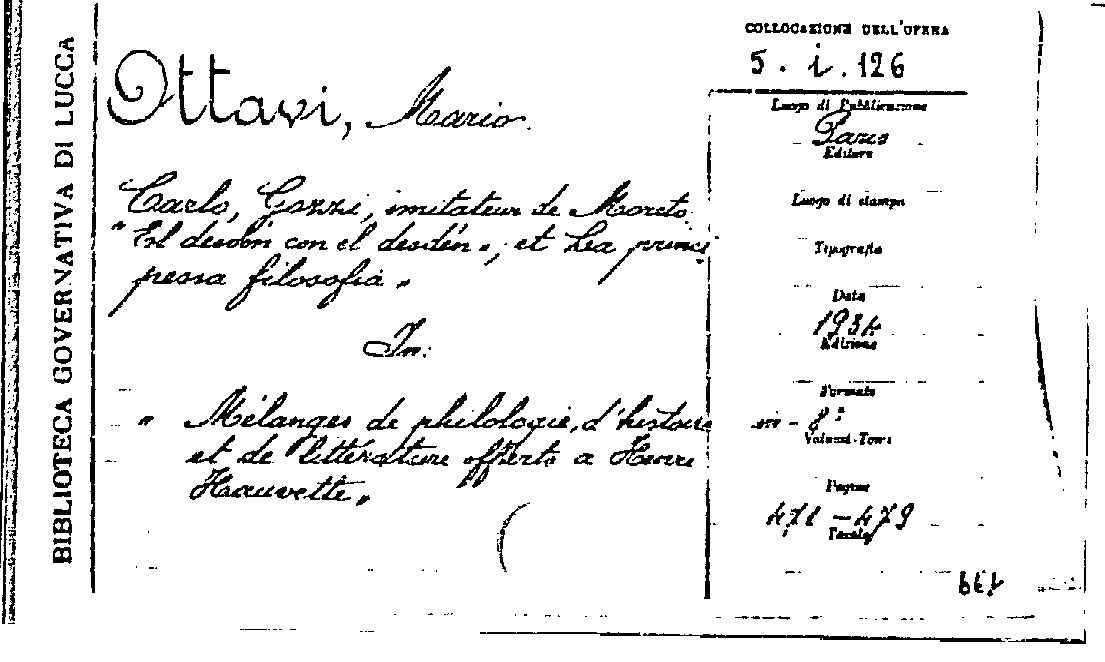 BIBLIOTECA GOVERNATIVA DI LUCCA
Ottavi, Mario.
Carlo, Gozzi, imitateur de Moreto.
"El desdén con el desdén", et La princi
pessa filosofia"
In:
" Mélanges de philologie, d'histoire
et de littérature offerts a Henri
Hauvette"
COLLOCAZIONE DELL'OPERA
5. i. 126
Luogo di Pubblicazione
Paris
Editore
Luogo di stampa
Tipografia
Data
1934
Edizione
Formato
in-8°
Volumi-Tomi
Pagine
471-479
Tavole